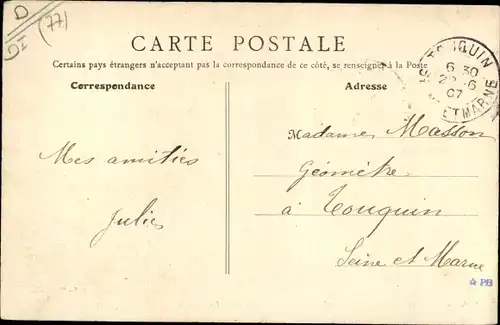 D
DI
(77)
CARTE POSTALE
Certains pays étrangers n'acceptant pas la correspondance de ce côté, se renseigner à la Poste
Correspondance
Adresse
TOUQUIN
6 30
6
07
ET MARNE
Madame Masson
Géomètre
à Touquin
Seine et Marne
Mes amitiés
Julie
PB